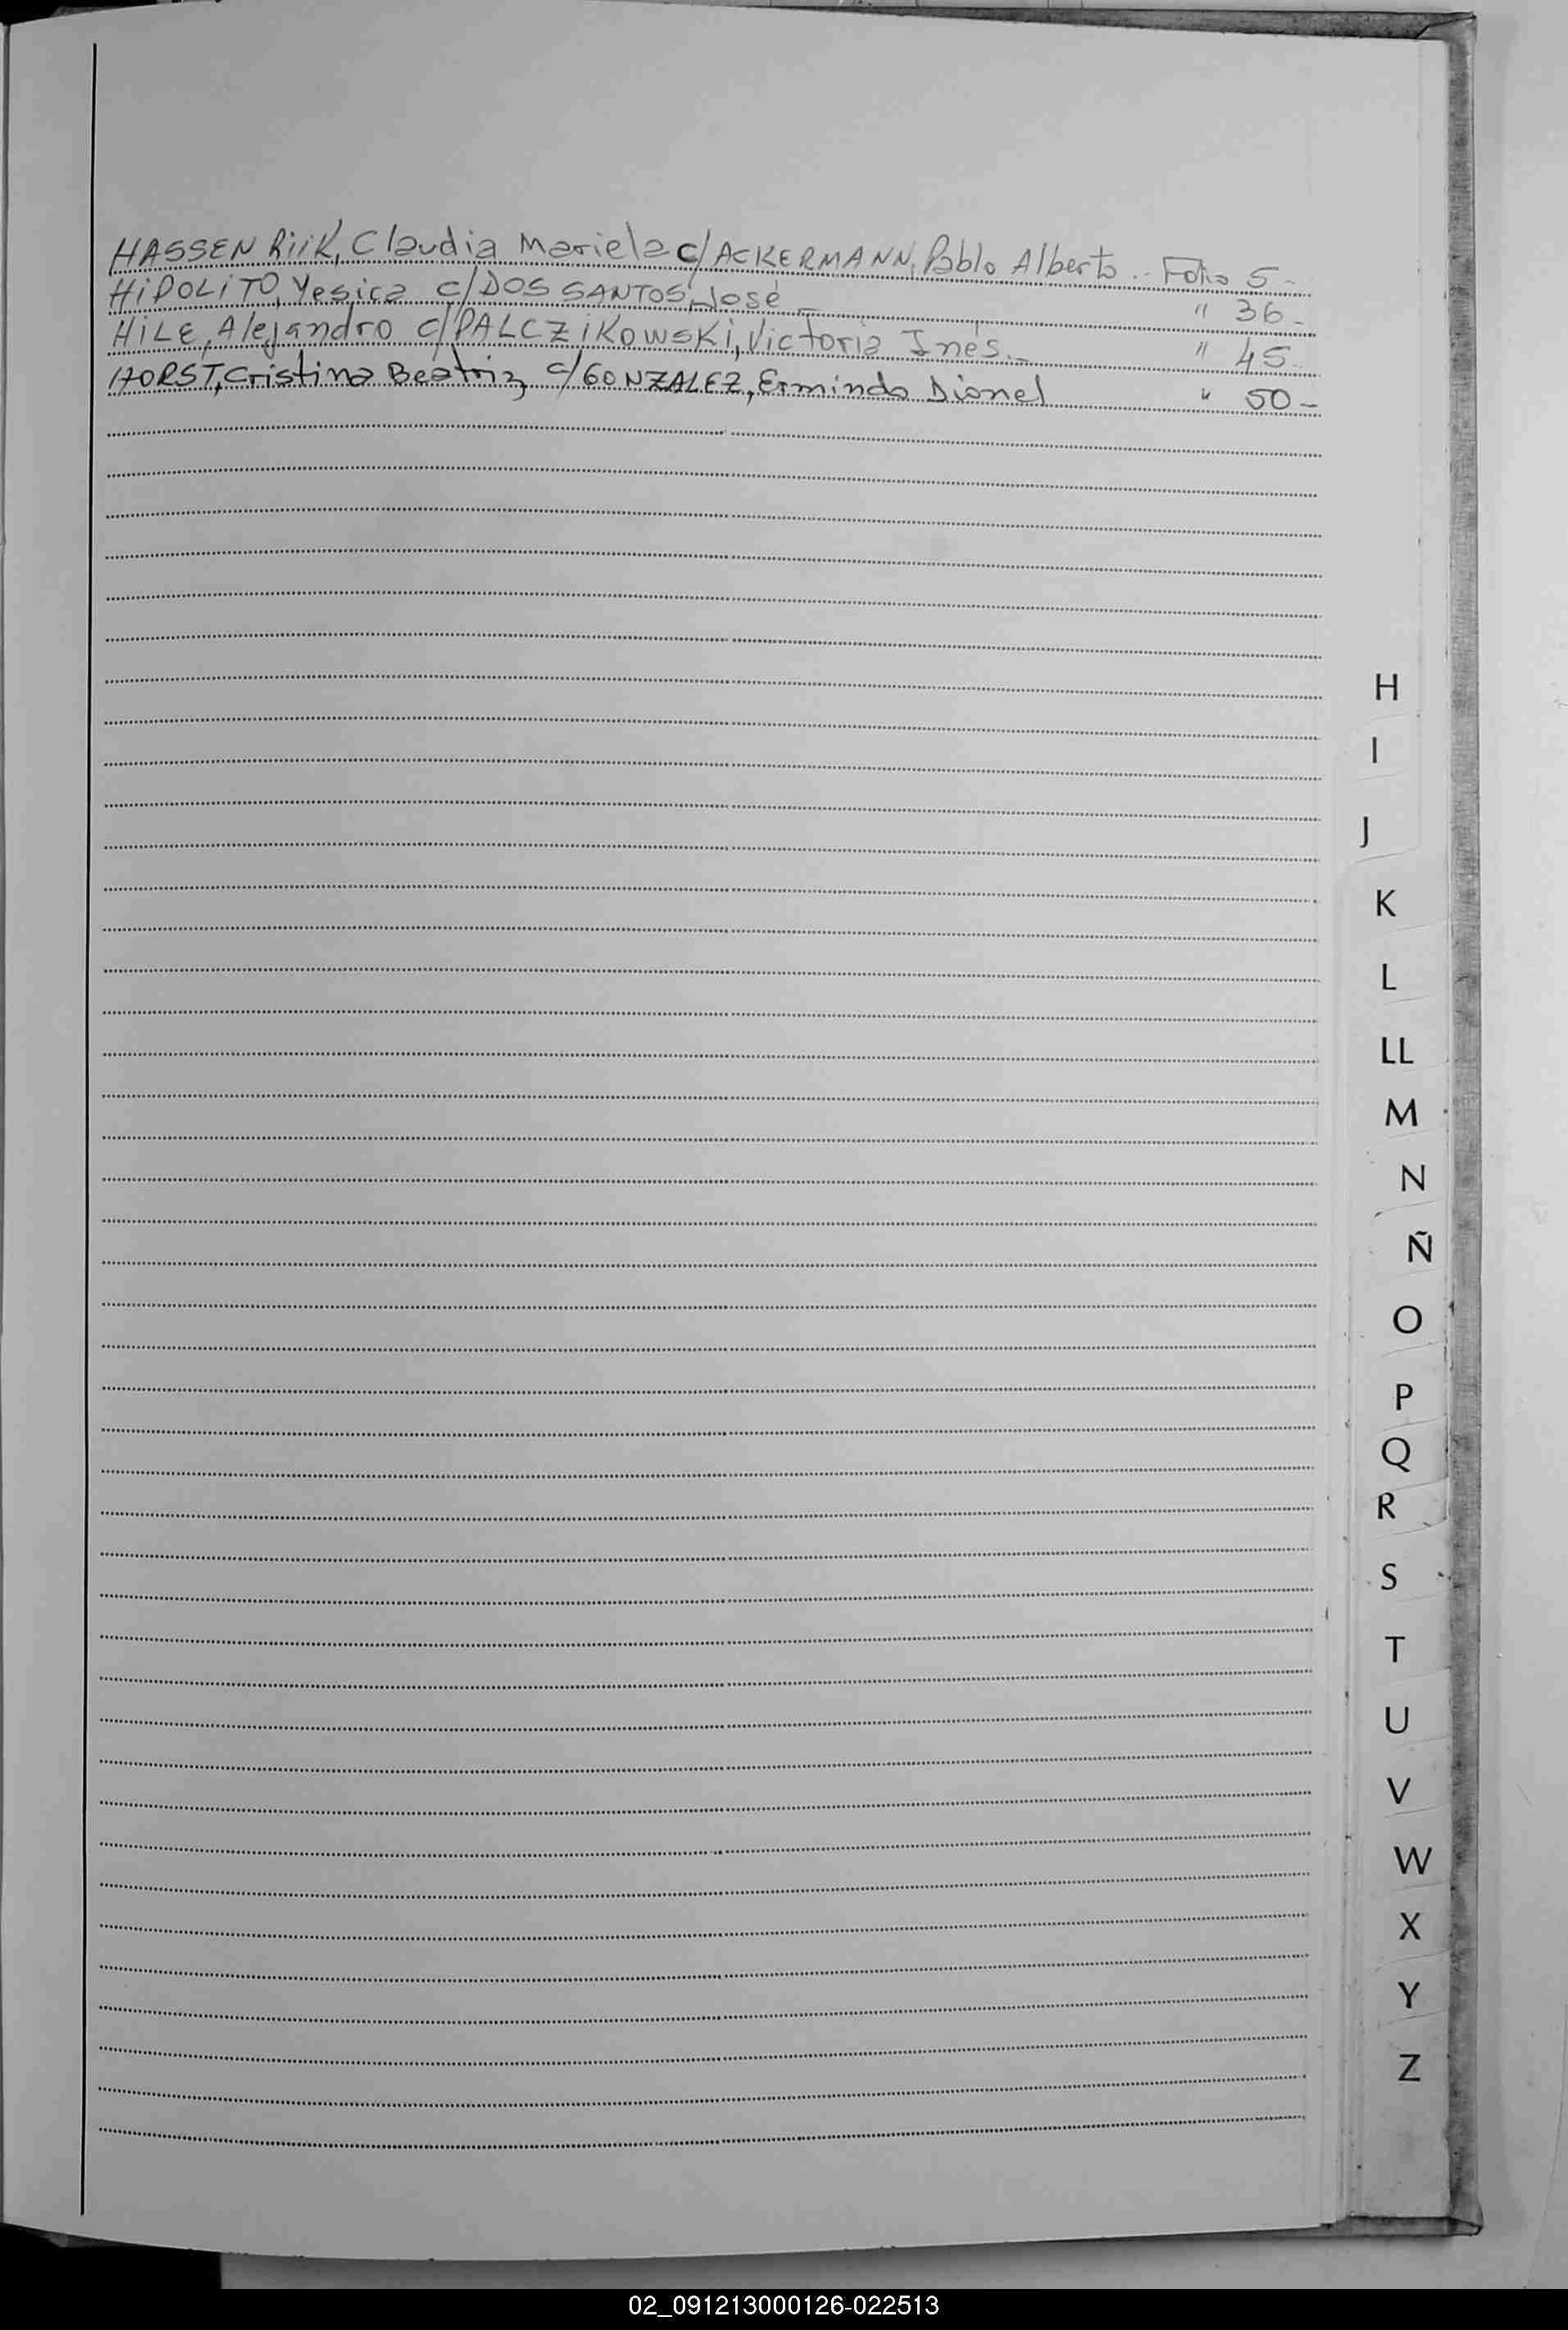 HASSEN RiiK, Claudia Mariela c/ ACKERMANN, Pablo Alberto .. Folio 5 -
HiPOLiTO, Yesica c/ DOS SANTOS, José - " 36 -
HiLE, Alejandro c/ PALCZiKOWSKi, Victoria Inés. - " 45 -
HORST, Cristina Beatriz c/ GONZALEZ, Ermindo Dionel " 50 -
H
I
J
K
L
LL
M
N
Ñ
O
P
Q
R
S
T
U
V
W
X
Y
Z
02_091213000126-022513